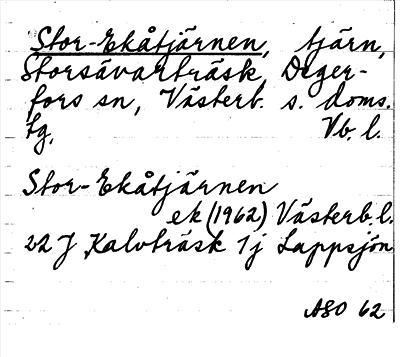 Stor-Ekåtjärnen, tjärn,
Storsävarträsk, Deger-
fors sn, Västerb. s. doms.
tg, Vb. l.
Stor-Ekåtjärnen
ek (1962) Västerb. l.
22 J Kalvträsk 1j Lappsjön
ASO 62